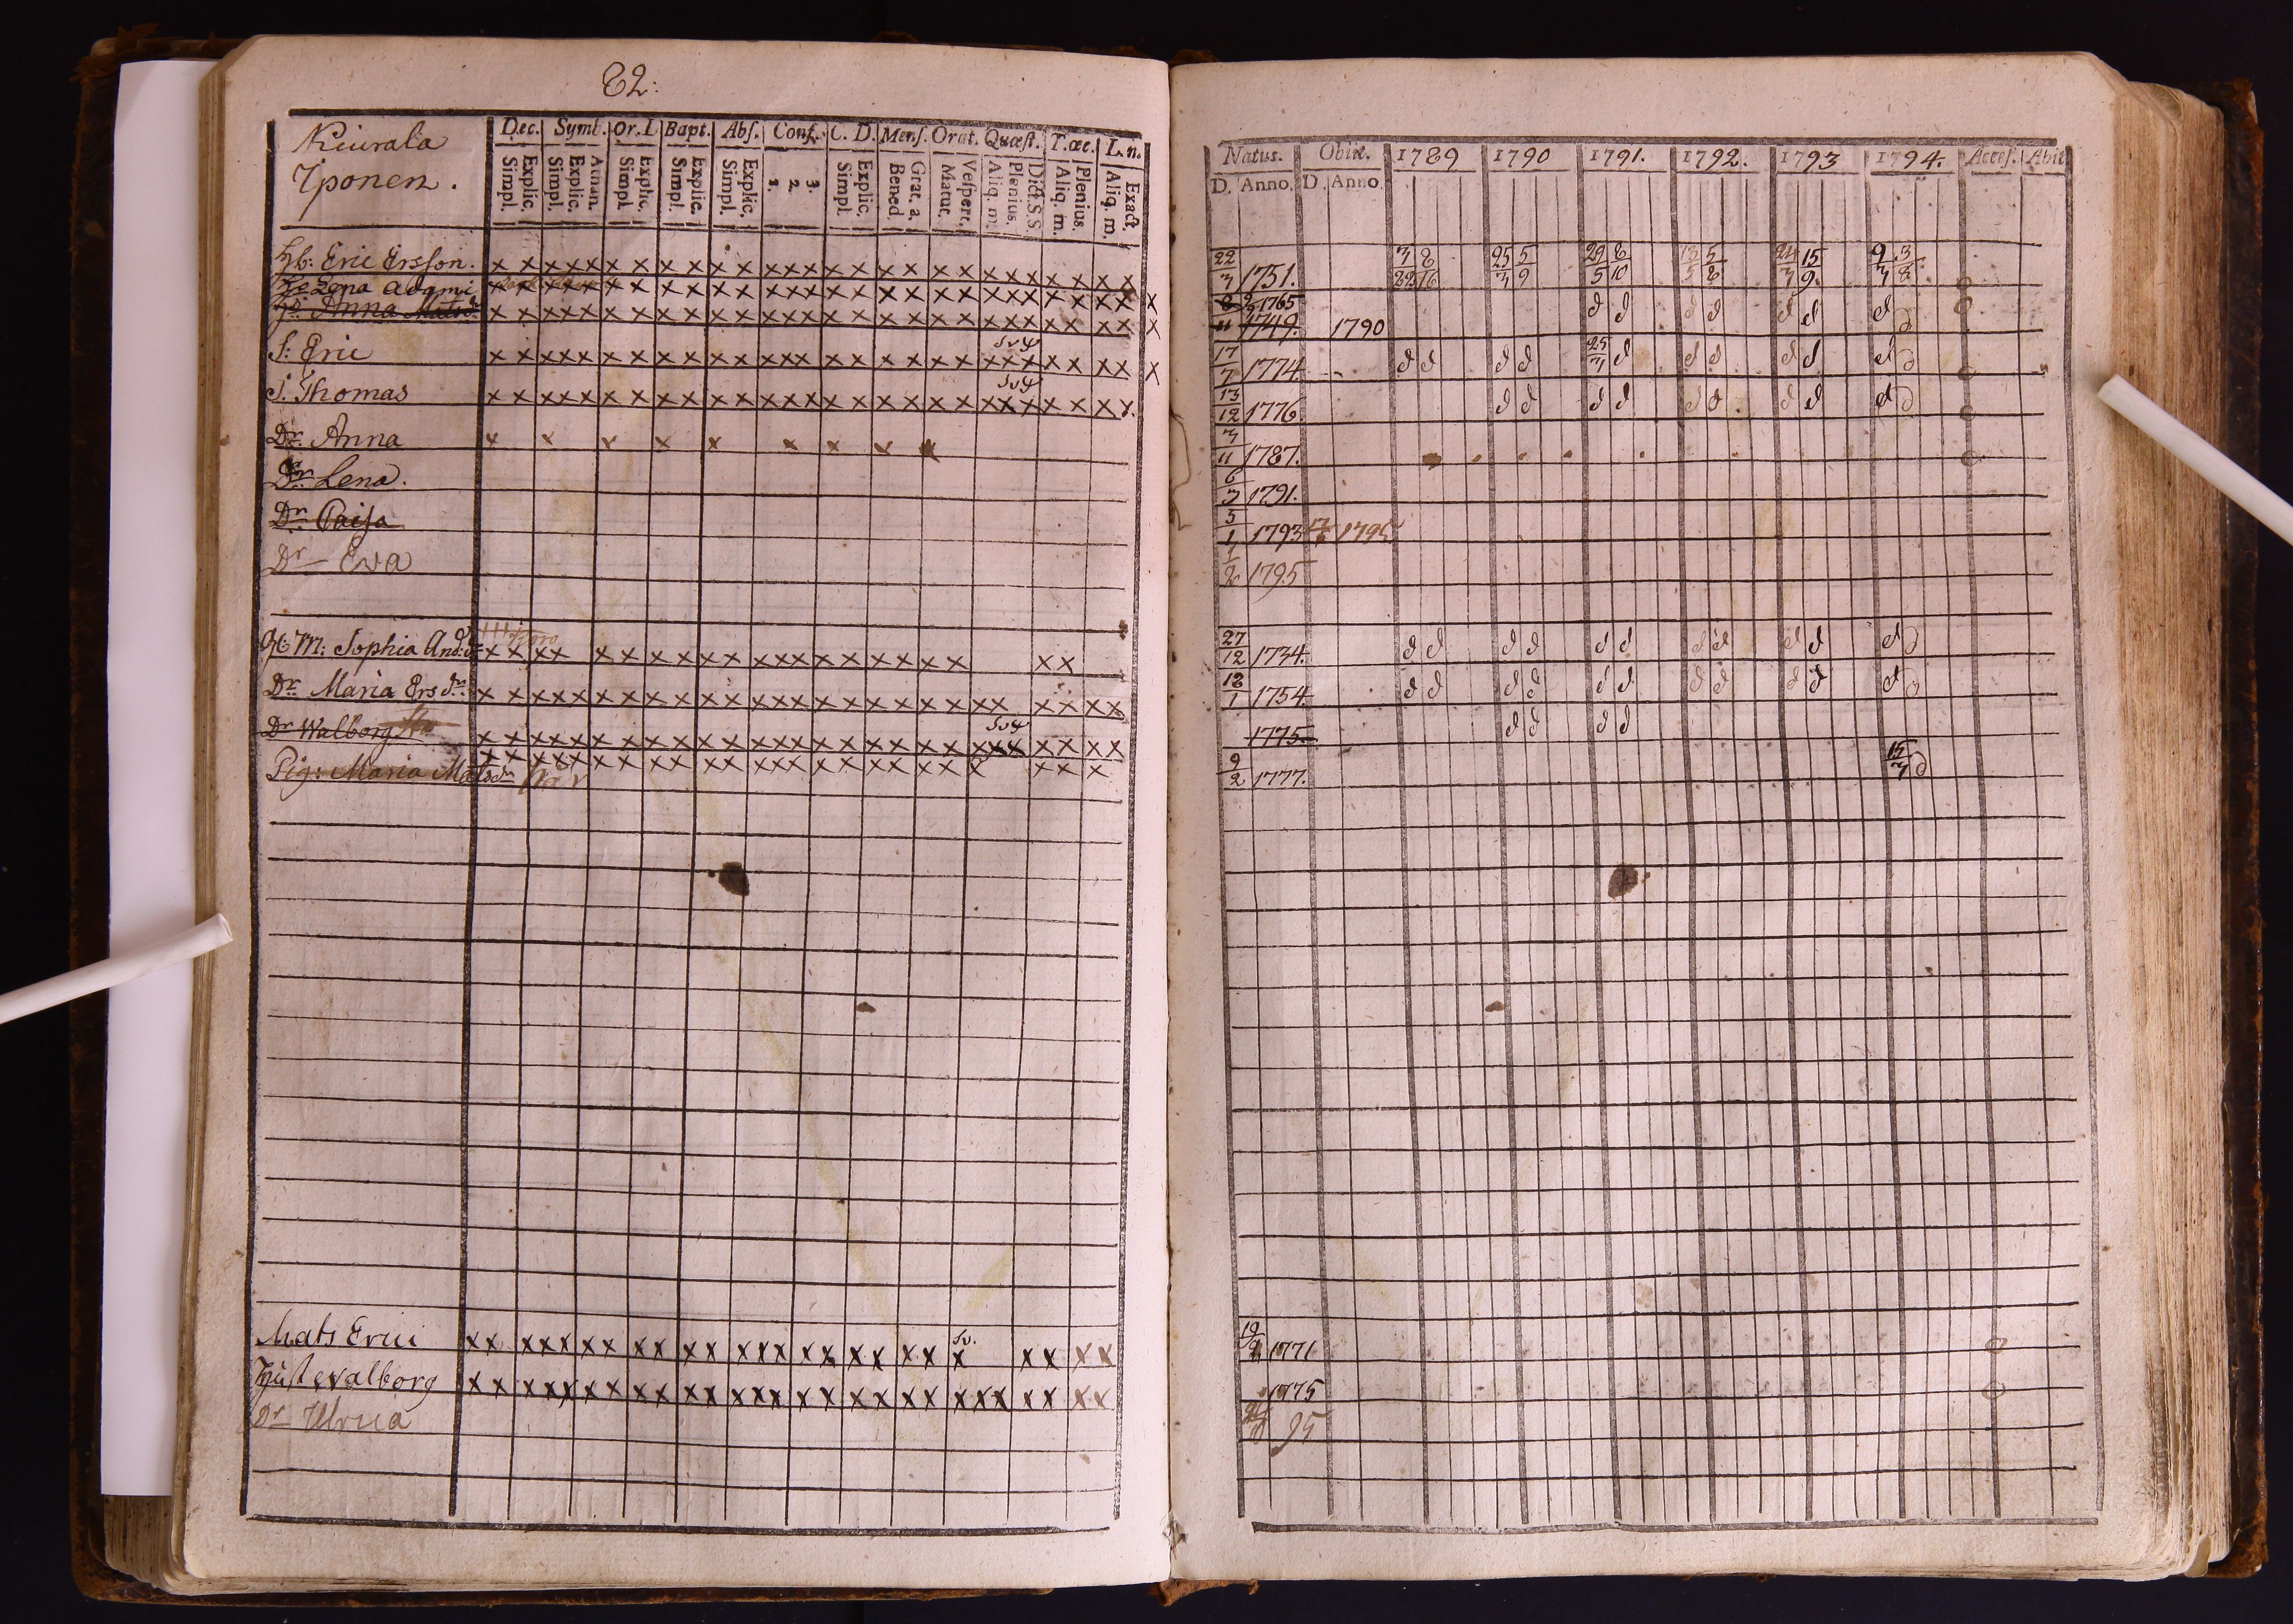 82:
Kiurala
Yponen.
Dec. Symb. Or. L Bapt. Abs. Conf. C. D. Mens. Orat. Quæst. T. œc. L. n.
Simpl. Explic. Simpl. Explic. Athan. Simpl. Explic. Simpl. Explic. Simpl. Explic. 1. 2. 3. Simpl. Explic. Bened. Grat. a. Matut. Vespert. Aliq. m. Plenius. Dict. S. S Aliq. m. Plenius. Aliq. m. Exact.
Hb: Eric Ersson. x x x x x x x x x x x x x x x x x x x x x x x x x x x
Lena Adami x x x x x x x x x x x x x x x x x x x x x x x x x x x
Anna Matsdr x x x x x x x x x x x x x x x x x x x x x x x x x x x
S: Eric x x x x x x x x x x x x x x x x x x x x x x x x x x x
S. Thomas x x x x x x x x x x x x x x x x x x x x x x x x x x x
Dr. Anna x x x x x x x x x
Dr. Lena.
Dr. Caisa
Dr Eva
M: Sophia And:dr x x x x x x x x x x x x x x x x x x x x x x
Dr. Maria Ersdr. x x x x x x x x x x x x x x x x x x x x x x x x x x
Dr Walborg x x x x x x x x x x x x x x x x x x x x x x x x x x x
Pig: Maria Matsdr x x x x x x x x x x x x x x x x x x x x x x x x
Mats Erici x x x x x x x x x x x x x x x x x x x x x x x x x
Hust Walborg x x x x x x x x x x x x x x x x x x x x x x x x x x x
Dr Ulrica
Natus. Obiit. 1789 1790 1791. 1792. 1793 1794. Acces. Abiit
D. Anno. D. Anno.
22/3 1751. 7 8 25 5 29 8 13 5 24 15 9 3
29 16 7 9 5 10 5 8 7 9. 7 8
1765 d d d d d d d
11 1749. 1790
17/7 1774. d d d d 25/7 d d d d d d
13/12 1776. d d d d d d d d d
7/11 1787.
6/3 1791.
5/1 1793 1795
1795
27/12 1734. d d d d d d d d d d d
18/1 1754. d d d d d d d d d d d
1775 d d d d
9/2 1777. 15/7
1771
1775
95